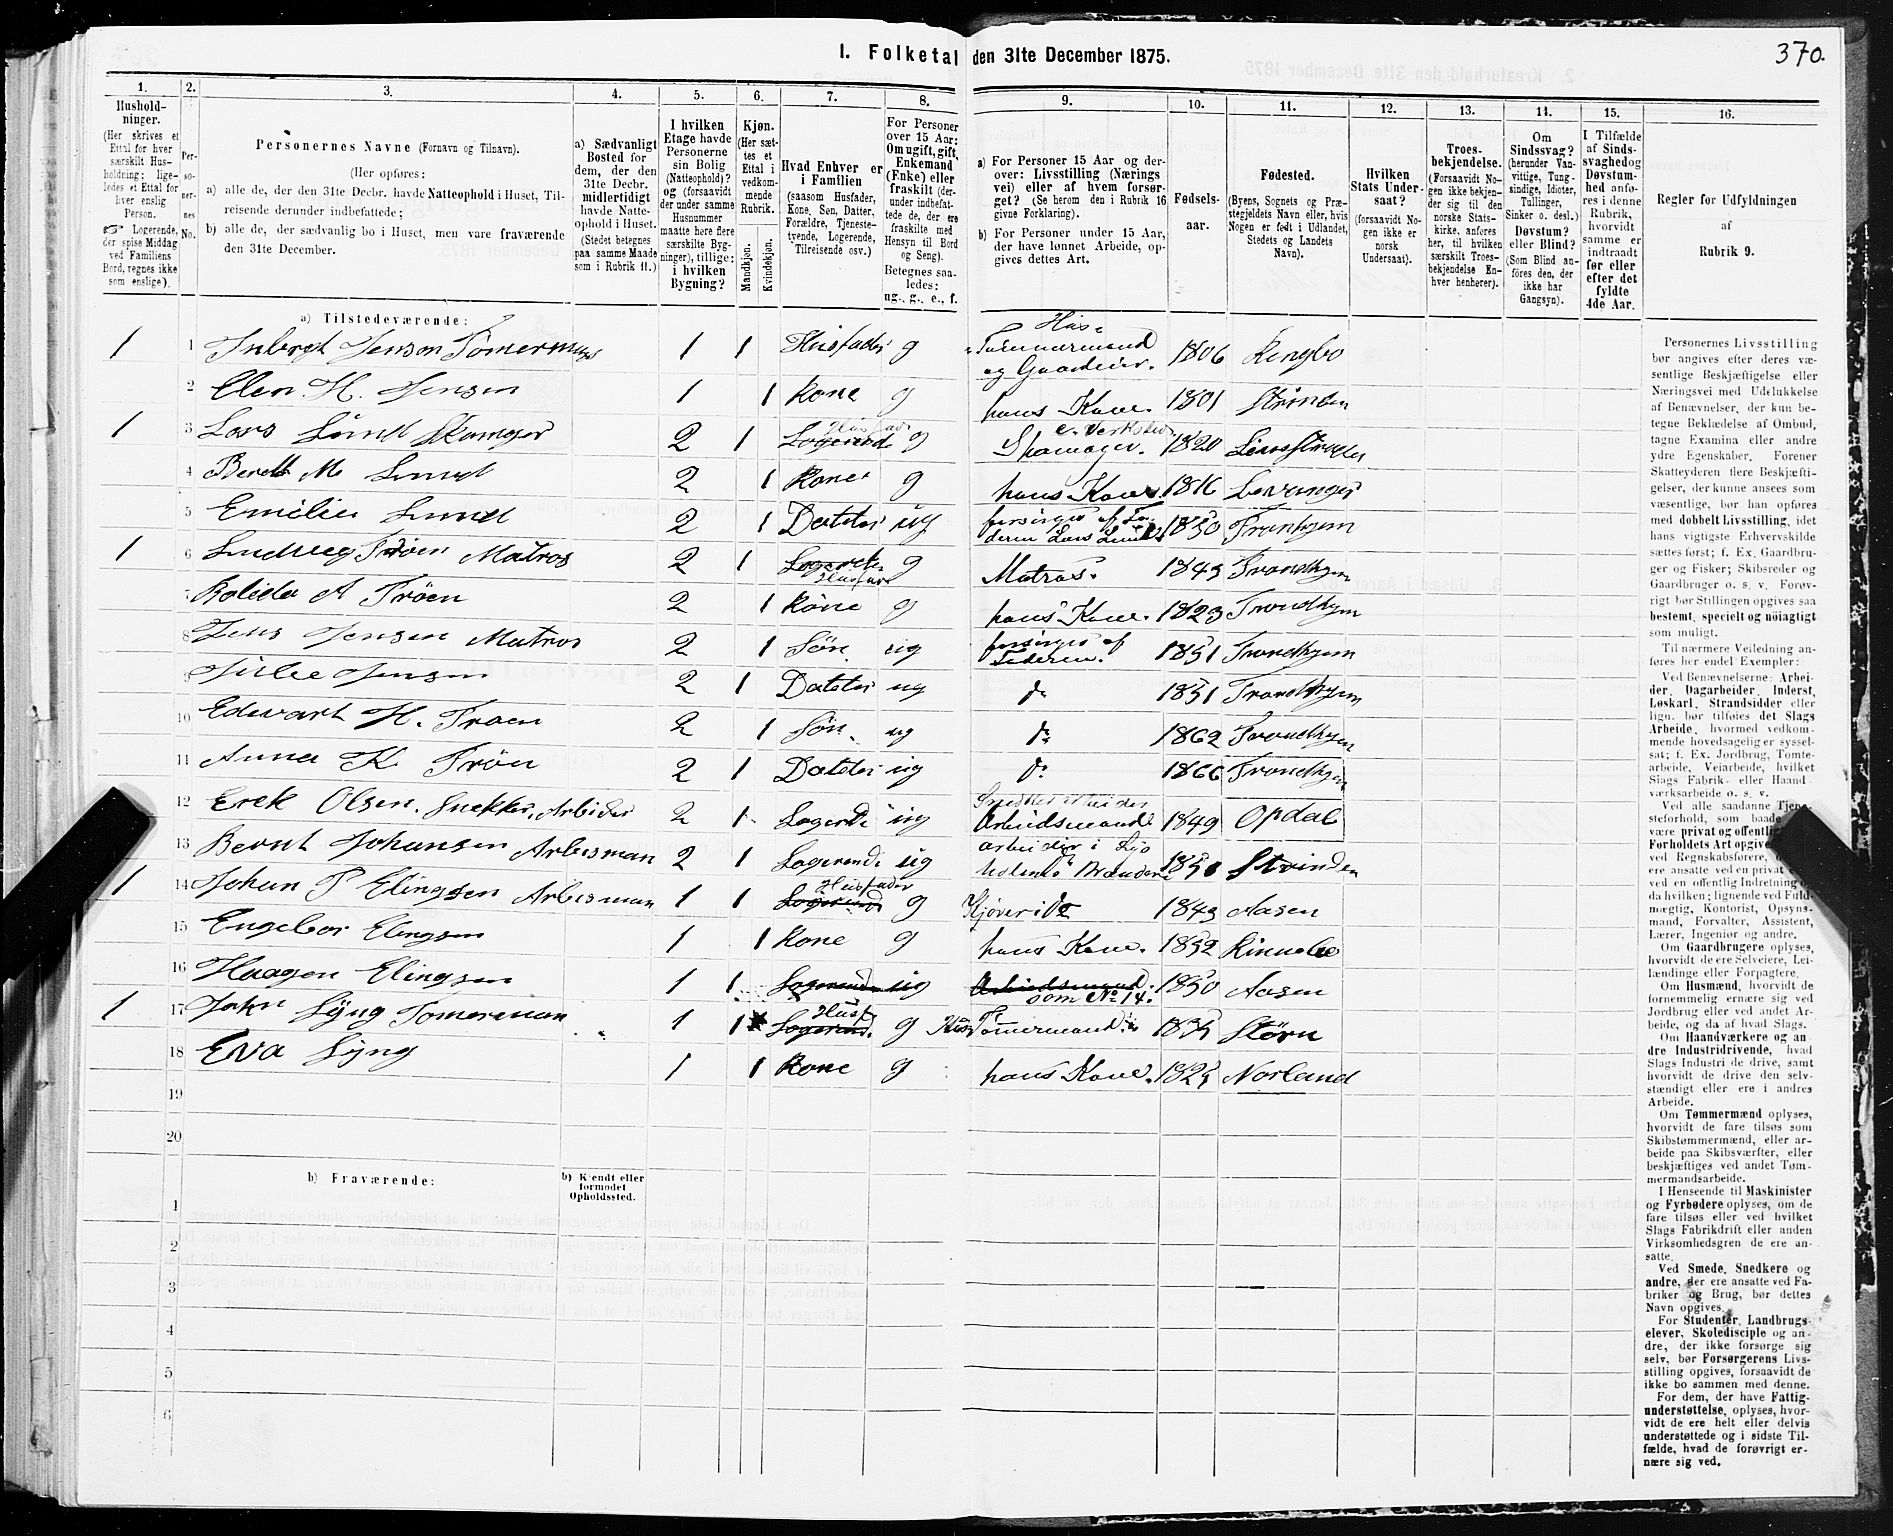 I. Folketal den 31te December 1875.
370.
1.
Hushold-
ninger.
(Her skrives et
Ettal for hver
særskilt Hus-
holdning; lige-
ledes et Ettal for
hver enslig
Person.
☞ Logerende,
der spise Middag
ved Familiens
Bord, regnes ikke
som enslige).
2.
Per-
so-
ner-
nes
No.
3.
Personernes Navne (Fornavn og Tilnavn).
(Her opføres:
a) alle de, der den 31te Decbr. havde Natteophold i Huset, Til-
reisende derunder indbefattede;
b) alle de, der sædvanlig bo i Huset, men vare fraværende
den 31te December.
4.
a) Sædvanligt
Bosted for
dem, der den
31te Decbr.
midlertidigt
havde Natte-
ophold i Huset.
(Stedet betegnes
paa samme Maade
som i Rubrik 11.)
5.
I hvilken
Etage havde
Personerne
sin Bolig
(Natteophold)?
og (forsaavidt
der under samme
Husnummer
maatte høre flere
særskilte Byg-
ninger), tillige:
i hvilken
Bygning?
6.
Kjøn.
(Her sæt-
tes et
Ettal i
vedkom-
mende
Rubrik.
Mandkjøn.
Kvindekjøn.
7.
Hvad Enhver er
i Familien
(saasom Husfader,
Kone, Søn, Datter,
Forældre, Tjeneste-
tyende, Logerende,
Tilreisende osv.)
8.
For Personer
over 15 Aar:
Om ugift, gift,
Enkemand
(Enke) eller
fraskilt (der-
under indbefat-
tede de, der ere
fraskilte med
Hensyn til Bord
og Seng).
Betegnes saa-
ledes:
ug., g., e., f.
9.
a) For Personer 15 Aar og der-
over: Livsstilling (Nærings
vei) eller af hvem forsør-
get? (Se herom den i Rubrik 16
givne Forklaring).
b) For Personer under 15 Aar,
der have lønnet Arbeide, op-
gives dettes Art.
10.
Fødsels-
aar.
11.
Fødested.
(Byens, Sognets og Præ-
stegjeldets Navn eller, hvis
Nogen er født i Udlandet,
Stedets og Landets
Navn).
12.
Hvilken
Stats Under-
saat?
(forsaavidt No-
gen ikke er
norsk
Undersaat).
13.
Troes-
bekjendelse.
(Forsaavidt No-
gen ikke bekjen-
der sig til den
norske Stats-
kirke, anføres
her, til hvilken
særskilt Troes-
bekjendelse En-
hver henhører).
14.
Om
Sindssvag?
(herunder Van-
vittige, Tung-
sindige, Idioter,
Tullinger,
Sinker o. desl.)
Døvstum?
eller Blind?
(Som Blind an-
føres den, der
ikke har
Gangsyn).
15.
I Tilfælde
af Sinds-
svaghed og
Døvstum-
hed anfø-
res i denne
Rubrik,
hvorvidt
samme er
indtraadt
før eller
efter det
fyldte
4de Aar.
16.
Regler for Udfyldningen
af
Rubrik 9.
a) Tilstedeværende:
1 1 Jenson Tömermans 1 1 Husfader g Hus- Tømmermand og Gaardeier. 1806
2 Elen H. Jensen 1 1 Kone g hans Kone. 1801 Strinden
1 3 Lars Lund 2 1 Logerende Husfader g Skomager. 1820
4 Berett M Lund 2 1 Kone g hans Kone 1816 Levanger
5 Emilie Lund 2 1 Datter ug forsørges af Faderen Lars Lund 1850 Trondhjem
1 6 Ludveg Trøen Matros 2 1 Logerende Husfader g Matros. 1843 Trondhjem
7 A Trøen 2 1 Kone g hans Kone. 1823 Trondhjem
8 Jens Jensen Matros 2 1 Søn ug forsørges af Faderen. 1851 Trondhjem
9 Jensen 2 1 Datter ug do 1851 Trondhjem
10 Edevart H. Troen 2 1 Søn ug do 1862 Trondhjem
11 Anna K Trøen 2 1 Datter ug do 1866 Trondhjem
12 Erek Olsen. Snekker, Arbider 2 1 Logerende ug Snedker Arbeider Arbeidsmand 1849 Opdal
13 Bernt Johansen Arbesman 2 1 Logerende ug arbeider i 1850 Strinden
1 14 Johan P Elingsen Arbesman 1 1 Logerende Husfader g Kjøver i do 1843 Aasen
15 Engebor Elingsen 1 1 Kone g hans Kone. 1852
16 Haagen Elingsen 1 1 Logerende ug Arbeidsmand. som No 14. 1850 Aasen
1 17 John Lyng Tømerman 1 1 Logerend. Husf. g Hus Tømermand 1835 Størn
18 Eva Lyng 1 1 Kone g hans Kone. 1825 Norland
19
20
b) Fraværende:
b) Kjendt eller
formodet
Opholdssted.
1
2
3
4
5
6
Personernes Livsstilling
bør angives efter deres væ-
sentlige Beskjæftigelse eller
Næringsvei med Udelukkelse
af Benævnelser, der kun be-
tegne Beklædelse af Ombud,
tagne Examina eller andre
ydre Egenskaber. Forener
Skatteyderen flere Beskjæfti-
gelser, der kunne ansees som
væsentlige, bør han opføres
med dobbelt Livsstilling, idet
hans vigtigste Erhvervskilde
sættes først; f. Ex. Gaardbru-
ger og Fisker; Skibsreder og
Gaardbruger o. s. v. Forøv-
rigt bør Stillingen opgives saa
bestemt, specielt og nøiagtigt
som muligt.
Til nærmere Veiledning an-
føres her endel Exempler:
Ved Benævnelserne: Arbei-
der, Dagarbeider, Inderst,
Løskarl, Strandsidder eller
lign. bør tilføies det Slags
Arbeide, hvormed vedkom-
mende hovedsagelig er syssel-
sat; f. Ex. Jordbrug, Tømte-
arbeide, Veiarbeide, hvilket
Slags Fabrik- eller Haand-
værksarbeide o. s. v.
Ved alle saadanne Tjene-
steforhold, som baade
være privat og offentlig
Forholdets Art opgives,
ved Regnskabsførere,
ere ansatte ved en privat
ved en offentlig Indretning
da hvilken; lignende ved Fuld-
mægtig, Kontorist, Opsyns-
mand, Forvalter, Assistent,
Lærer, Ingeniør og andre.
Om Gaardbrugere oplyses,
hvorvidt de ere Selveiere, Lei-
lændinge eller Forpagtere.
Om Husmænd, hvorvidt de
fornemmelig ernære sig ved
Jordbrug eller ved andet Ar-
beide, og da af hvad Slags.
Om Haandværkere og an-
dre Industridrivende, hvad
Slags Industri de drive, samt
hvorvidt de drive den selv-
stændigt eller ere i andres
Arbeide.
Om Tømmermænd oplyses,
hvorvidt de fare tilsøs som
Skibstømmermænd, eller ar-
beide paa Skibsværfter, eller
beskjæftiges ved andet Tøm-
mermandsarbeide.
I Henseende til Maskinister
og Fyrbødere oplyses, om de
fare tilsøs eller ved hvilket
Slags Fabrikdrift eller anden
Virksomhedsgren de ere an-
satte.
Ved Smede, Snedkere og
andre, der ere ansatte ved Fa-
briker og Brug, bør dettes
Navn opgives.
For Studenter, Landbrugs-
elever, Skoledisciple og an-
dre, der ikke forsørge sig
selv, bør Forsørgerens Livs-
stilling opgives, forsaavidt de
ikke bo sammen med denne.
For dem, der have Fattig-
understøttelse, oplyses, hvor-
vidt de ere helt eller delvis
understøttede og i sidste Til-
fælde, hvad de forøvrigt er-
nære sig ved.